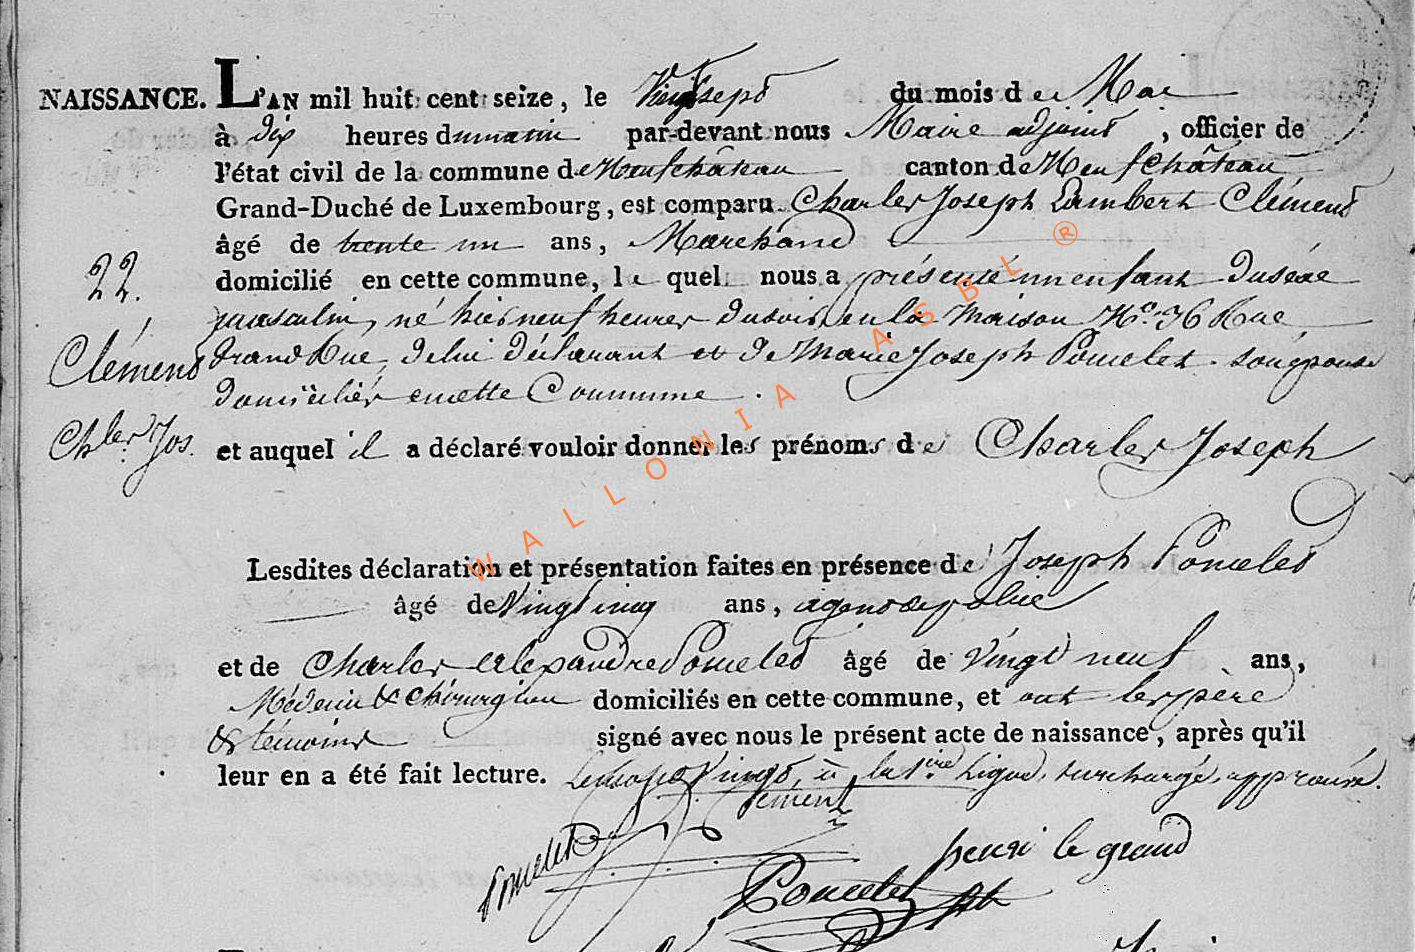 NAISSANCE. L'AN mil huit cent seize, le Vingt sept du mois de Mai
à Dix heures du matin par-devant nous Maire adjoint, officier de
l'état civil de la commune de Neufchâteau canton de Neufchâteau
Grand-Duché de Luxembourg, est comparu Charles Joseph Lambert Clément
âgé de trente un ans, Marchand
22.
domicilié en cette commune, le quel nous a présenté un enfant du sexe
masculin, né hier neuf heures du soir, en la Maison No. 36 Rue
Clément
Grand Rue, de lui déclarant et de Marie Joseph Poncelet son épouse
domiciliés en cette Commune.
Chles Jos.
et auquel il a déclaré vouloir donner les prénoms de Charles Joseph
Lesdites déclaration et présentation faites en présence de Joseph Poncelet
âgé de Vingt cinq ans, agent de police
et de Charles Alexandre Poncelet âgé de Vingt neuf ans,
Médecin & Chirurgien domiciliés en cette commune, et ont les père
& témoins signé avec nous le présent acte de naissance, après qu'il
leur en a été fait lecture. Le mot Vingt, à la 1ère Ligne, surchargé, approuvé.
Clément
henri le grand
Poncelet
Poncelet
WALLONIA ASBL ®